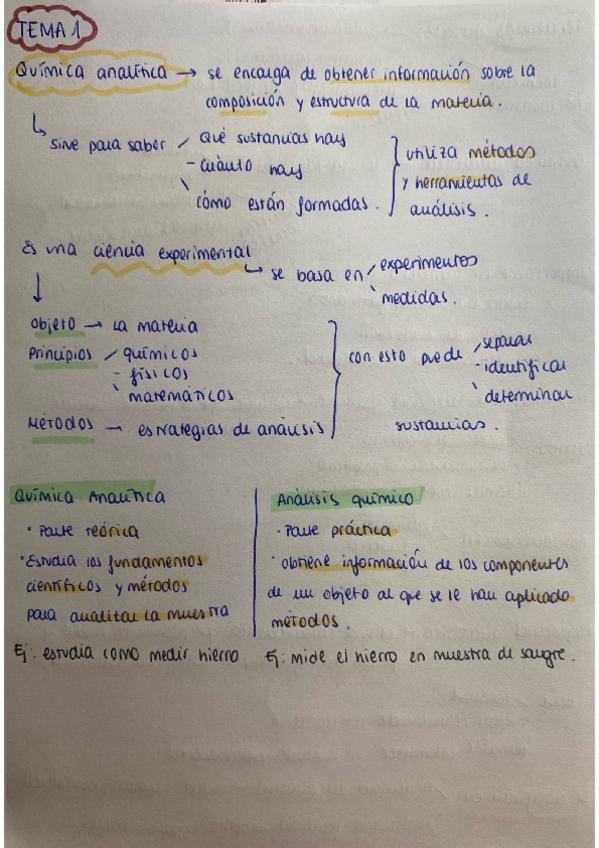 TEMA 1
Química analítica → se encarga de obtener información sobre la
composición y estructura de la materia.
Sirve para saber / Qué sustancias hay
- cuánto hay
\ cómo están formadas.
utiliza métodos
y herramientas de
análisis.
Es una ciencia experimental
↳ se basa en / experimentos
\ medidas.
Objeto → La materia
Principios / químicos
- físicos
\ matemáticos
Métodos → estrategias de análisis
con esto puede / separar
- identificar
\ determinar
sustancias.
Química Analítica
• Parte teórica
• Estudia los fundamentos
científicos y métodos
para analizar la muestra
Ej: estudia como medir hierro
Análisis químico
• Parte práctica
• obtiene información de los componentes
de un objeto al que se le han aplicado
métodos.
Ej: mide el hierro en muestra de sangre.